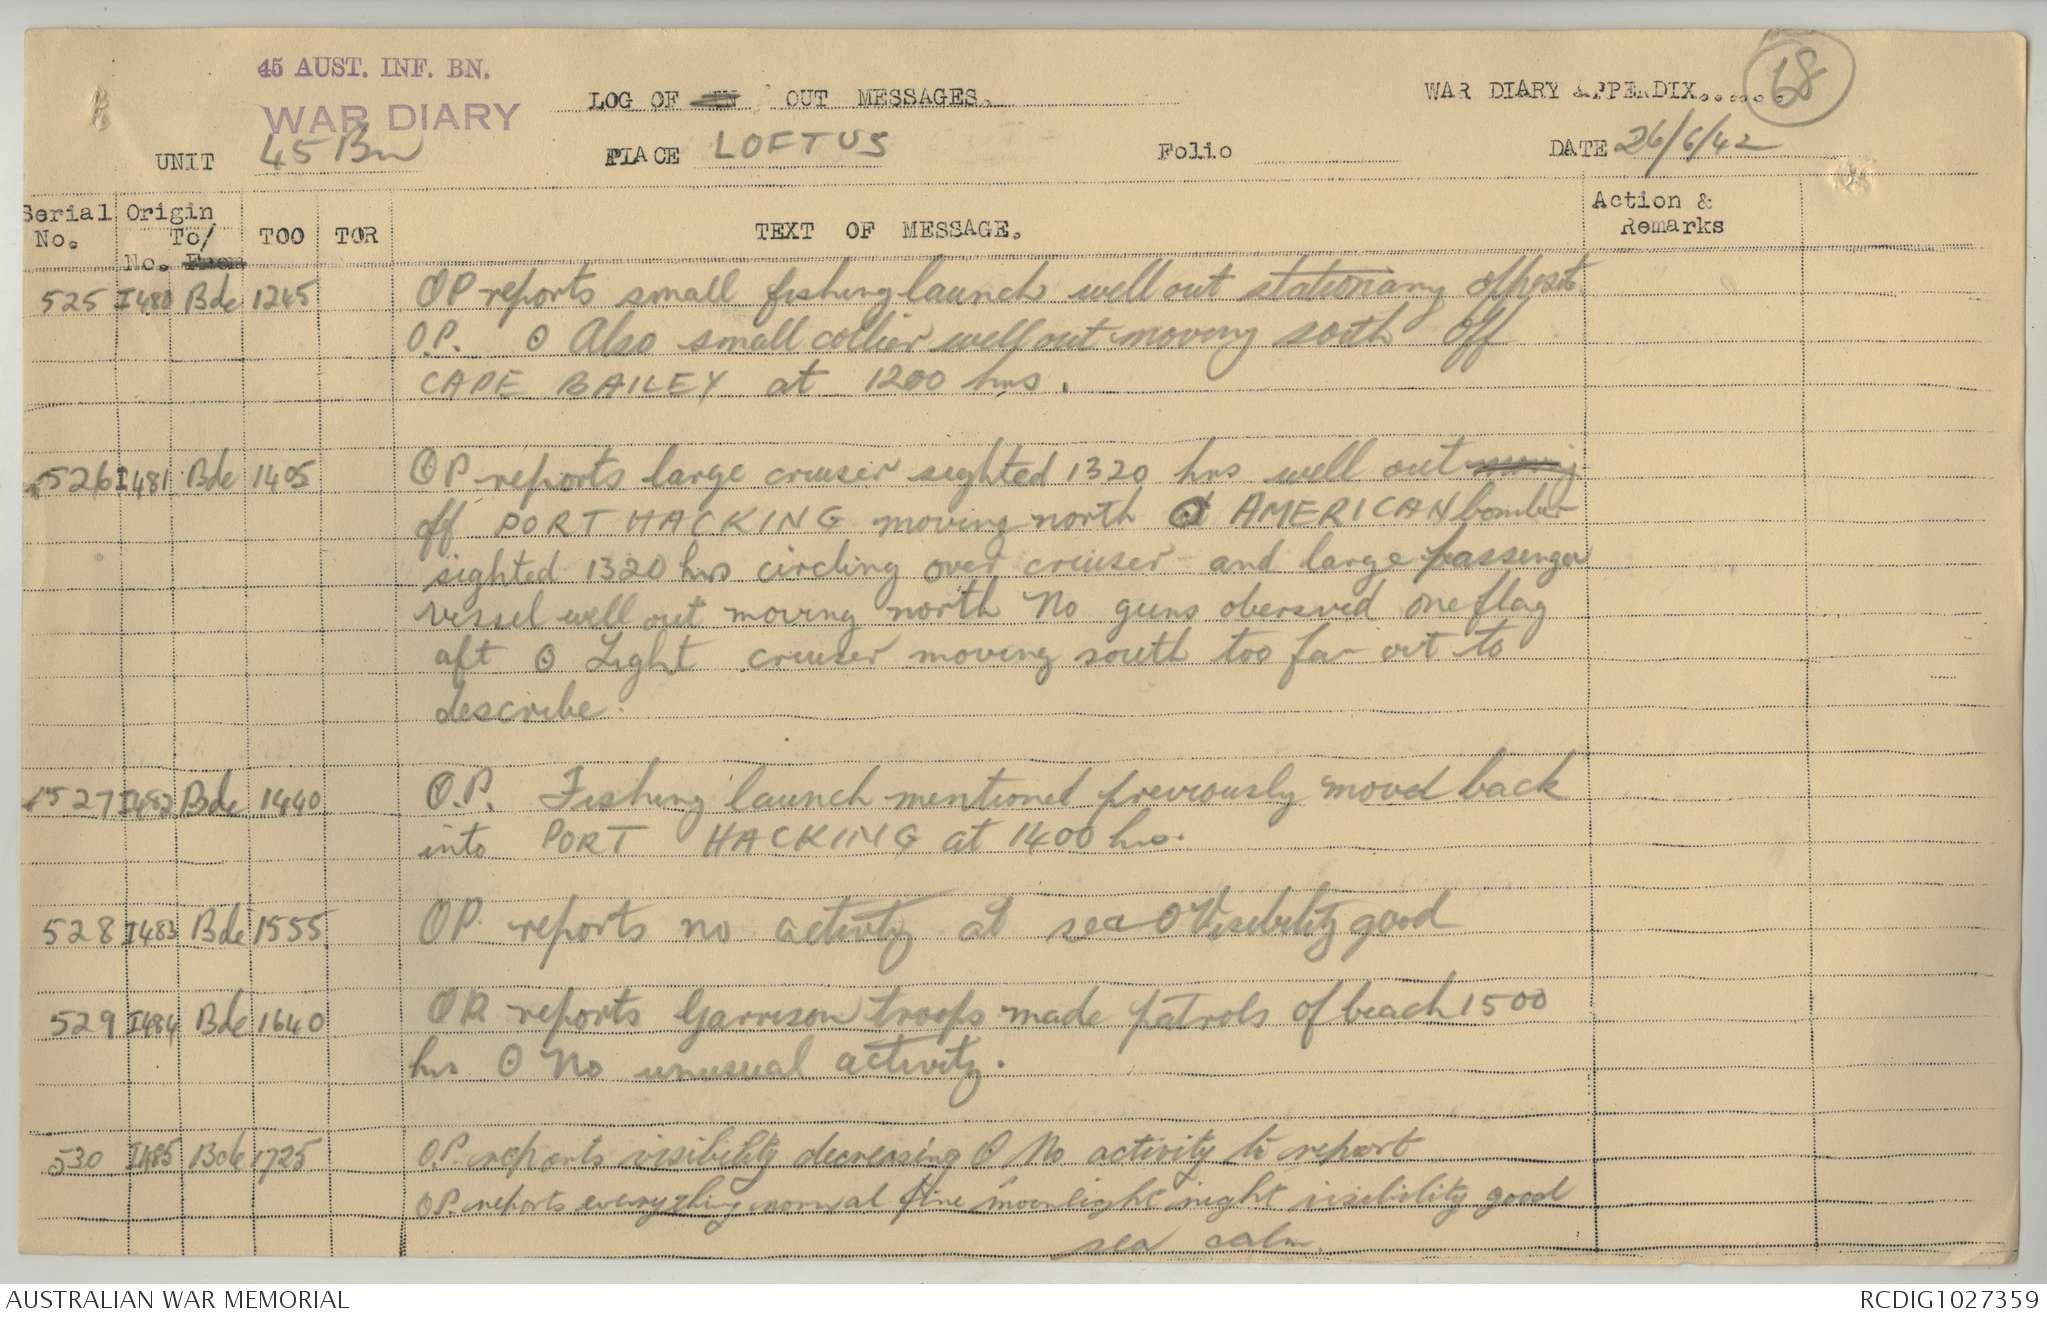 45 AUST. INF. BN.
WAR DIARY
LOG OF IN OUT MESSAGES.
WAR DIARY APPENDIX......
68
UNIT 45 Bn
PLACE LOFTUS
Folio
DATE 26/6/42
Serial No.
Origin No.
To/ From
TOO
TOR
TEXT OF MESSAGE.
Action & Remarks
525 I480 Bde 1245 OP reports small fishing launch well out stationary opposite
O.P. ⊙ Also small collier well out moving south off
CAPE BAILEY at 1200 hrs.
526 I481 Bde 1405 OP reports large cruiser sighted 1320 hrs well out moving
off PORT HACKING moving north ⊙ AMERICAN bomber
sighted 1320 hrs circling over cruiser and large passenger
vessel well out moving north No guns obersved one flag
aft ⊙ Light cruiser moving south too far out to
describe.
527 I482 Bde 1440 O.P. Fishing launch mentioned previously moved back
into PORT HACKING at 1400 hrs.
528 I483 Bde 1555 OP. reports no activity at sea ⊙ Visibility good
529 I484 Bde 1640 OP. reports Garrison troops made patrols of beach 1500
hrs ⊙ No unusual activity.
530 I485 Bde 1725 O.P. reports visibility decreasing ⊙ No activity to report
OP. reports everything normal fine moonlight night visibility good
sea calm.
AUSTRALIAN WAR MEMORIAL
RCDIG1027359